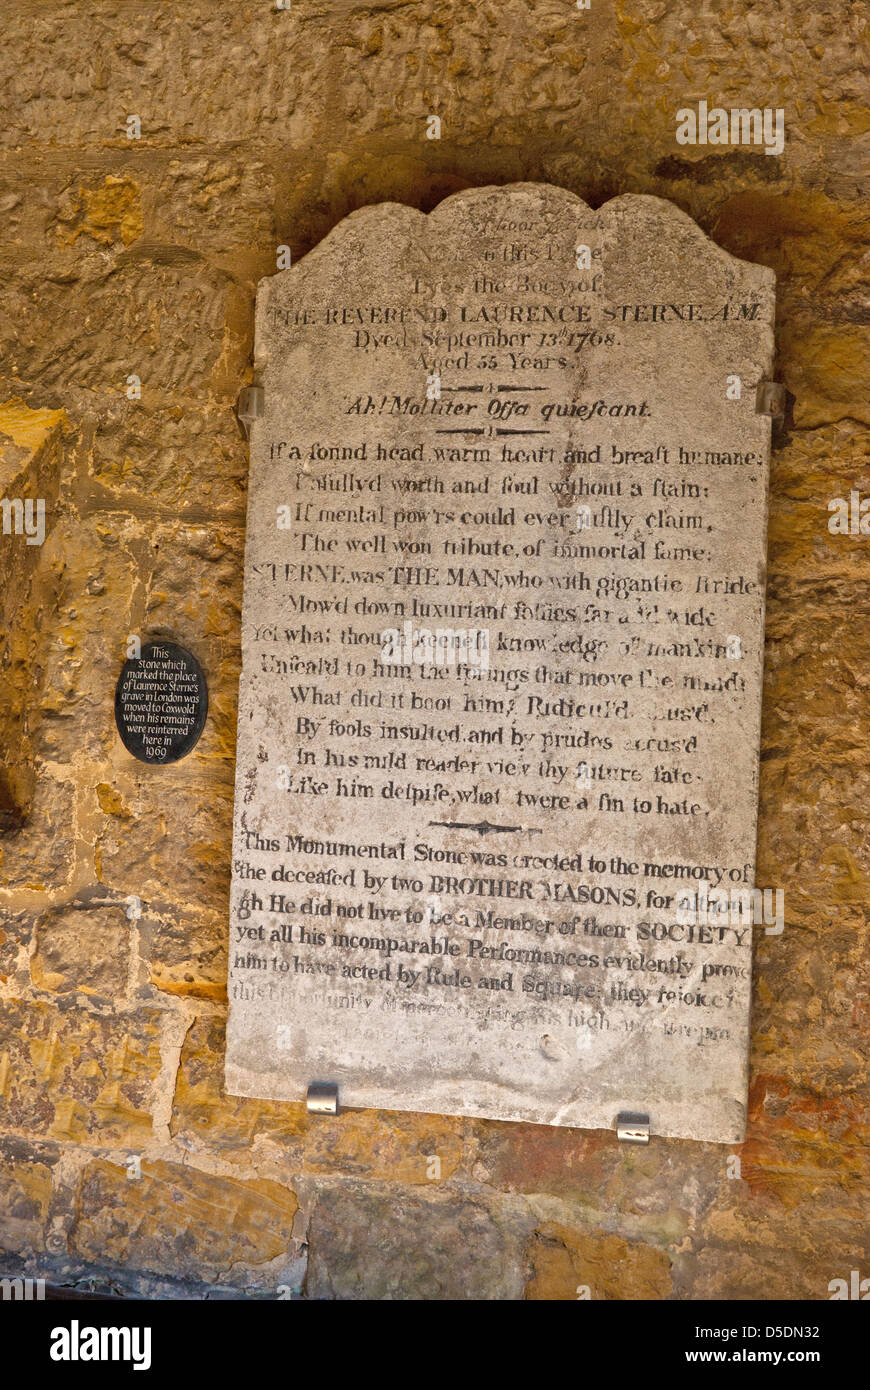 to this Place
Lyes the Body of
THE REVEREND LAURENCE STERNE, A.M.
Dyed September 13th 1768.
Aged 55 Years.
Ah! Molliter Ossa quiescant.
If a sound head, warm heart, and breast humane;
Unsully'd worth and soul without a stain;
If mental pow'rs could ever justly claim,
The well won tribute, of immortal fame;
STERNE, was THE MAN, who with gigantic stride
Mow'd down luxuriant follies far and wide
Yet what though keenest knowledge of mankind
Unseal'd to him the springs that move the mind;
What did it boot him? Ridicul'd, abus'd,
By fools insulted, and by prudes accus'd
In his mild reader view thy future fate
Like him despise, what twere a sin to hate.
This Monumental Stone was erected to the memory of
the deceased by two BROTHER MASONS, for althou-
gh He did not live to be a Member of their SOCIETY
yet all his incomparable Performances evidently prove
him to have acted by Rule and Square; they rejoice in
this opportunity of perpetuating his high and
This
stone which
marked the place
of Laurence Sterne's
grave in London was
moved to Coxwold
when his remains
were reinterred
here in
1969
alamy
alamy
Image ID: D5DN32
www.alamy.com